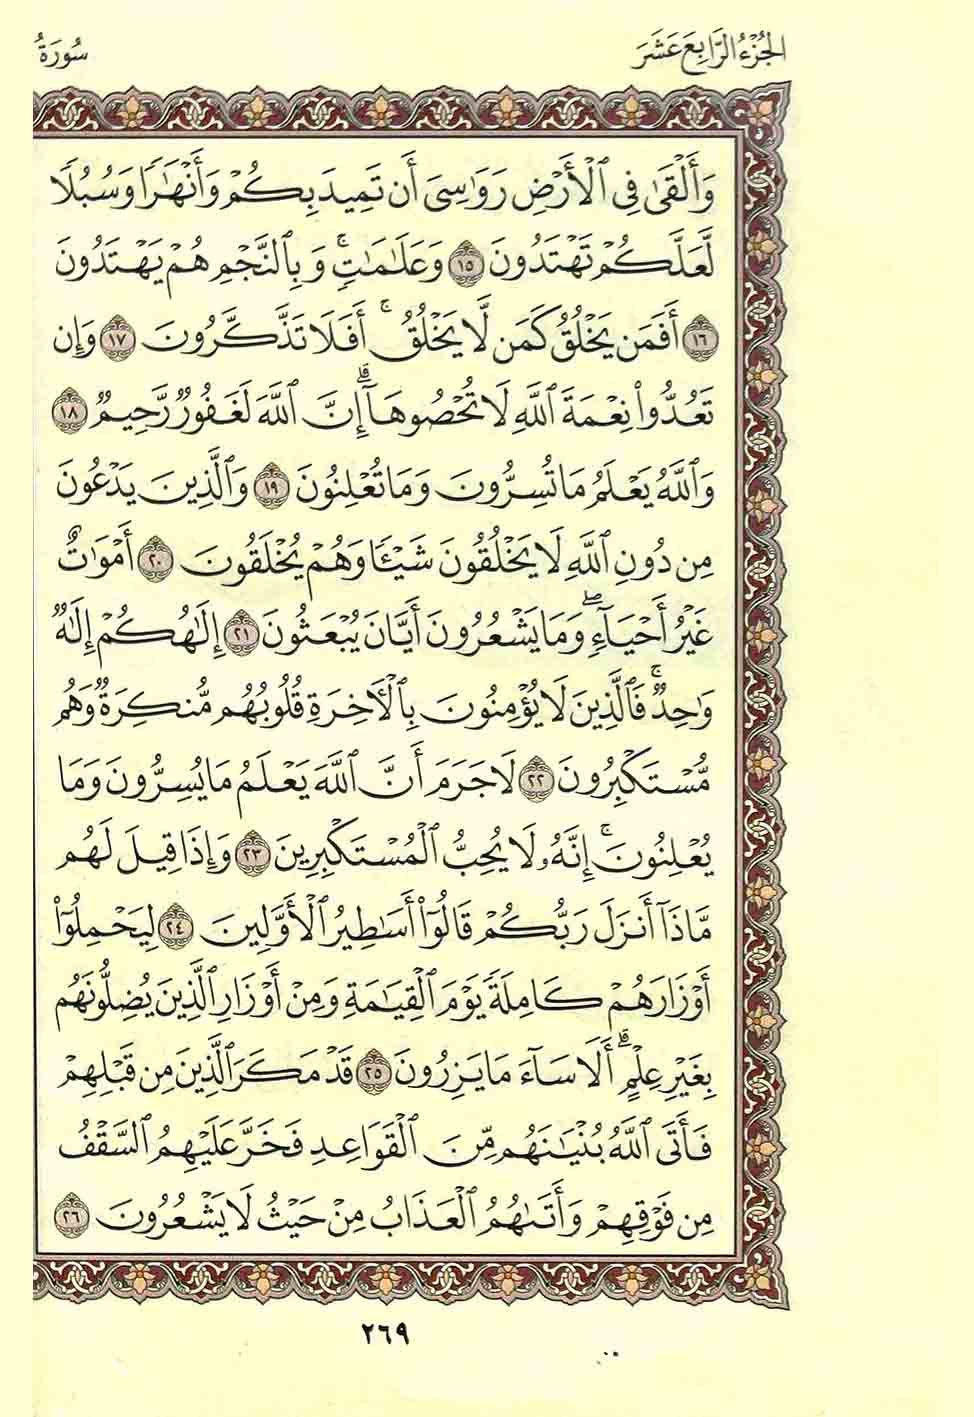 الجُزْءُ الرَّابِعَ عَشَرَ
سُورَةُ
وَأَلْقَىٰ فِي ٱلْأَرْضِ رَوَٰسِىَ أَن تَمِيدَ بِكُمْ وَأَنْهَٰرًا وَسُبُلًا
لَّعَلَّكُمْ تَهْتَدُونَ ١٥ وَعَلَٰمَٰتٍۚ وَبِٱلنَّجْمِ هُمْ يَهْتَدُونَ
١٦ أَفَمَن يَخْلُقُ كَمَن لَّا يَخْلُقُۚ أَفَلَا تَذَكَّرُونَ ١٧ وَإِن
تَعُدُّوا۟ نِعْمَةَ ٱللَّهِ لَا تُحْصُوهَآۗ إِنَّ ٱللَّهَ لَغَفُورٌ رَّحِيمٌ ١٨
وَٱللَّهُ يَعْلَمُ مَا تُسِرُّونَ وَمَا تُعْلِنُونَ ١٩ وَٱلَّذِينَ يَدْعُونَ
مِن دُونِ ٱللَّهِ لَا يَخْلُقُونَ شَيْـًٔا وَهُمْ يُخْلَقُونَ ٢٠ أَمْوَٰتٌ
غَيْرُ أَحْيَآءٍۖ وَمَا يَشْعُرُونَ أَيَّانَ يُبْعَثُونَ ٢١ إِلَٰهُكُمْ إِلَٰهٌ
وَٰحِدٌۚ فَٱلَّذِينَ لَا يُؤْمِنُونَ بِٱلْـَٔاخِرَةِ قُلُوبُهُم مُّنكِرَةٌ وَهُم
مُّسْتَكْبِرُونَ ٢٢ لَا جَرَمَ أَنَّ ٱللَّهَ يَعْلَمُ مَا يُسِرُّونَ وَمَا
يُعْلِنُونَۚ إِنَّهُۥ لَا يُحِبُّ ٱلْمُسْتَكْبِرِينَ ٢٣ وَإِذَا قِيلَ لَهُم
مَّاذَآ أَنزَلَ رَبُّكُمْ قَالُوٓا۟ أَسَٰطِيرُ ٱلْأَوَّلِينَ ٢٤ لِيَحْمِلُوٓا۟
أَوْزَارَهُمْ كَامِلَةً يَوْمَ ٱلْقِيَٰمَةِ وَمِنْ أَوْزَارِ ٱلَّذِينَ يُضِلُّونَهُم
بِغَيْرِ عِلْمٍۗ أَلَا سَآءَ مَا يَزِرُونَ ٢٥ قَدْ مَكَرَ ٱلَّذِينَ مِن قَبْلِهِمْ
فَأَتَى ٱللَّهُ بُنْيَٰنَهُم مِّنَ ٱلْقَوَاعِدِ فَخَرَّ عَلَيْهِمُ ٱلسَّقْفُ
مِن فَوْقِهِمْ وَأَتَىٰهُمُ ٱلْعَذَابُ مِنْ حَيْثُ لَا يَشْعُرُونَ ٢٦
٢٦٩